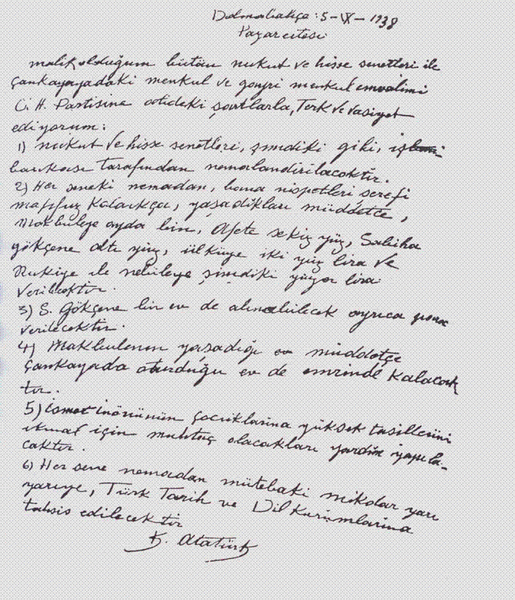 Dolmabahçe : 5-IX-1938
Pazarertesi
malik olduğum bütün nukut ve hisse senetleri ile
Çankayadaki menkul ve gayri menkul emvalimi
C. H. Partisine atideki şartlarla, Terk ve Vasiyet
ediyorum :
1) nukut ve hisse senetleri, şimdiki gibi, iş
bankası tarafından nemalandırılacaktır.
2) Her seneki nemadan, bana nispetleri şerefi
mahfuz kaldıkça, yaşadıkları müddetçe,
Makbuleye ayda bin, Afete sekiz yüz, Sabiha
gökçene altı yüz, ülküye iki yüz lira ve
Rukiye ile nebileye şimdiki yüzer lira
verilecektir.
3) S. Gökçene bir ev de alınabilecek ayrıca para
verilecektir.
4) Makbulenin yaşadığı müddetçe
Çankayada oturduğu ev de emrinde kalacak
tır.
5) ismet inönünün çocuklarına yüksek tahsillerini
ikmal için muhtaç olacakları yardım yapıla-
caktır.
6) Her sene nemadan mütebaki mikdar yarı
yarıya, Türk Tarih ve Dil Kurumlarına
tahsis edilecektir
K. Atatürk